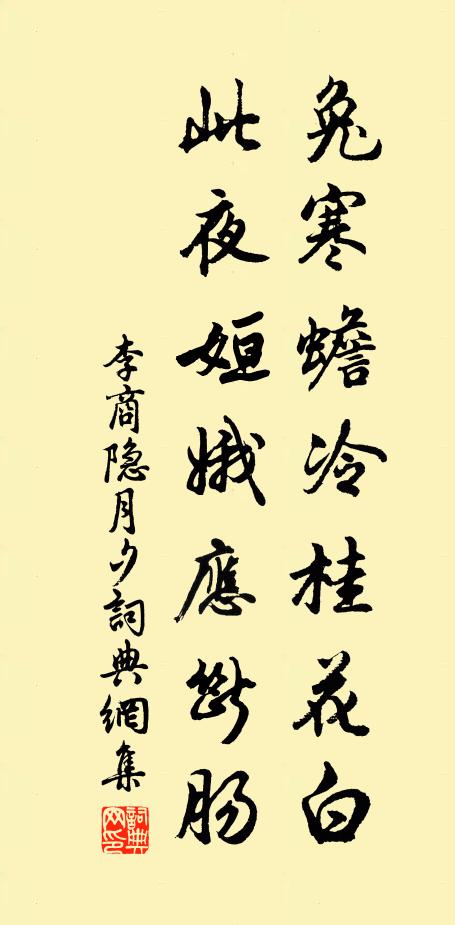 兔寒蟾冷桂花白
此夜姮娥應斷肠
李商隐月夕詞典網集
詞典网印